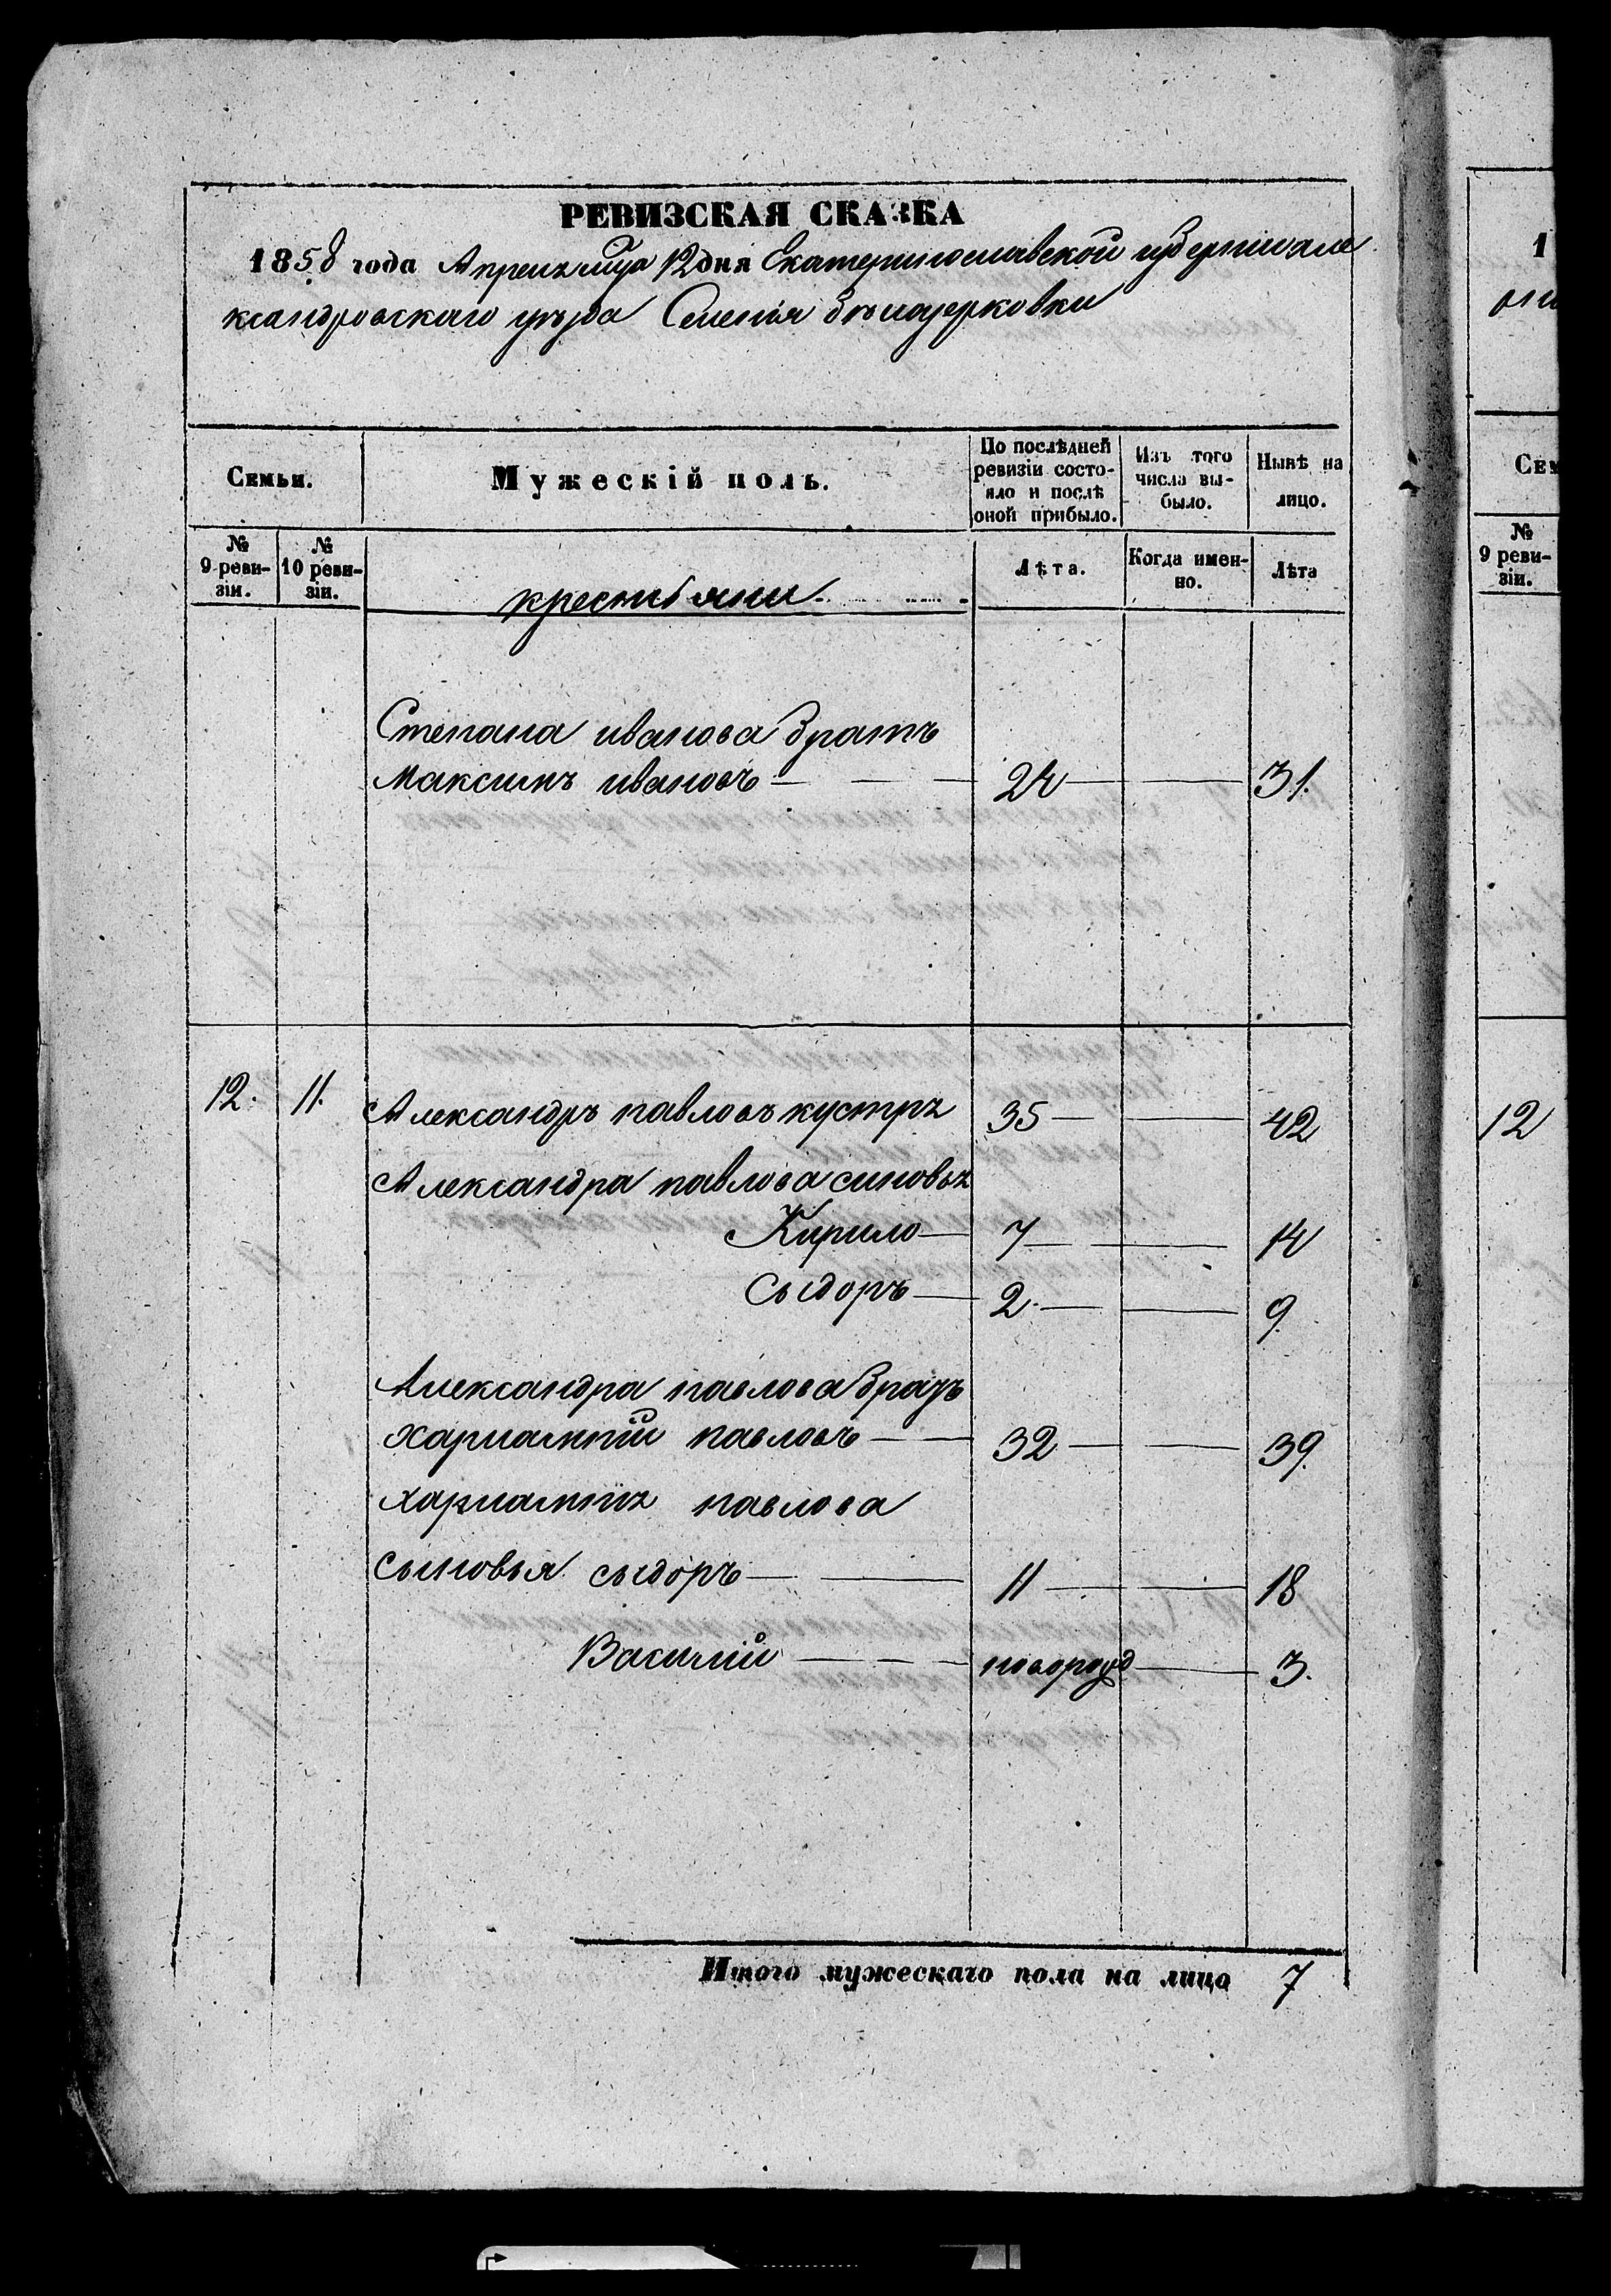 РЕВИЗСКАЯ СКАЗКА
1858 года Апрель мца 12 дня Екатеринославской губернии але
ксандровскаго уезда Селенія белоцерковки
Семьи.
Мужескій полъ.
По послѣдней ревизіи состояло и послѣ оной прибыло.
Изъ того числа выбыло.
Нынѣ на лицо.
№ 9 ревизіи.
№ 10 ревизіи.
крестьяни
Лѣта.
Когда именно.
Лѣта
Степана иванова братъ
Максимъ ивановъ 24 31.
12. 11. Александръ павловъ кустръ 35 42
Александра павлова синовья
Кирило 7 14
Сыдоръ 2 9.
Александра павлова братъ
харлампій павловъ 32 39.
харлампія павлова
сыновья сыдоръ 11 18
Василій новорожд 3.
Итого мужескаго пола на лицо 7
1
Сем
№ 9 ревизіи.
12